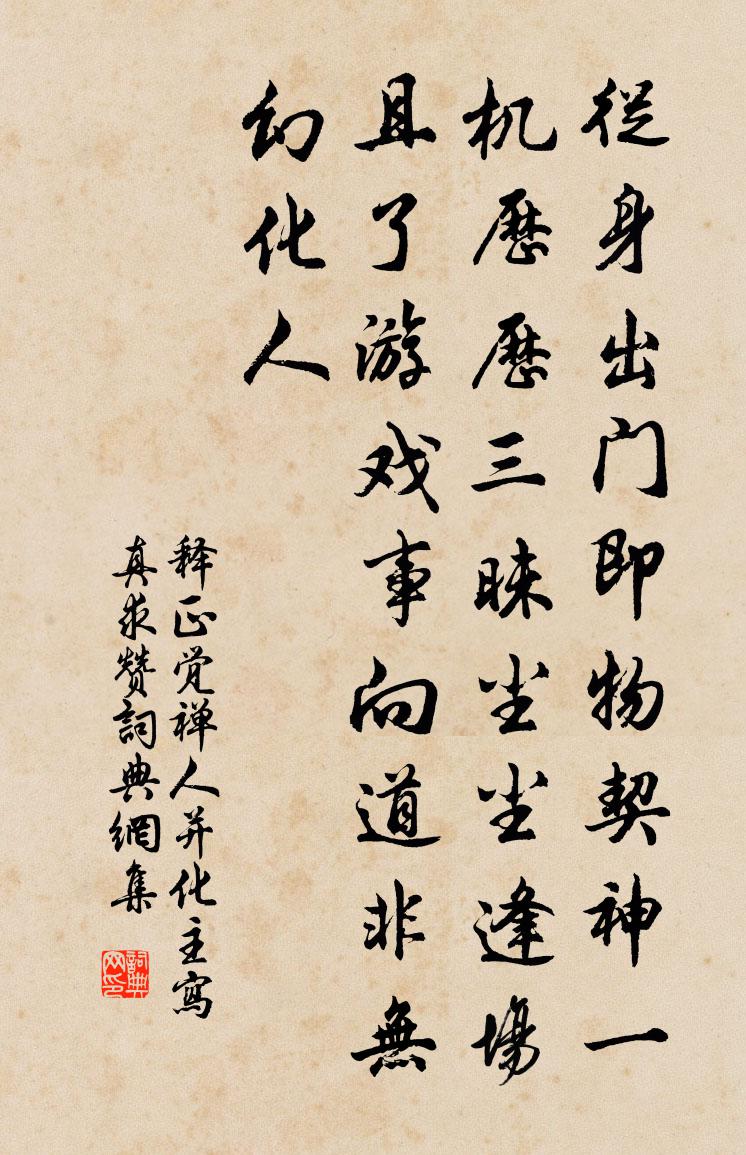 從身出门即物契神一
机歷歷三昧尘尘逢場
且了游戏事向道非無
幻化人
释正觉禅人并化主寫
真求赞詞典網集
詞典
网印